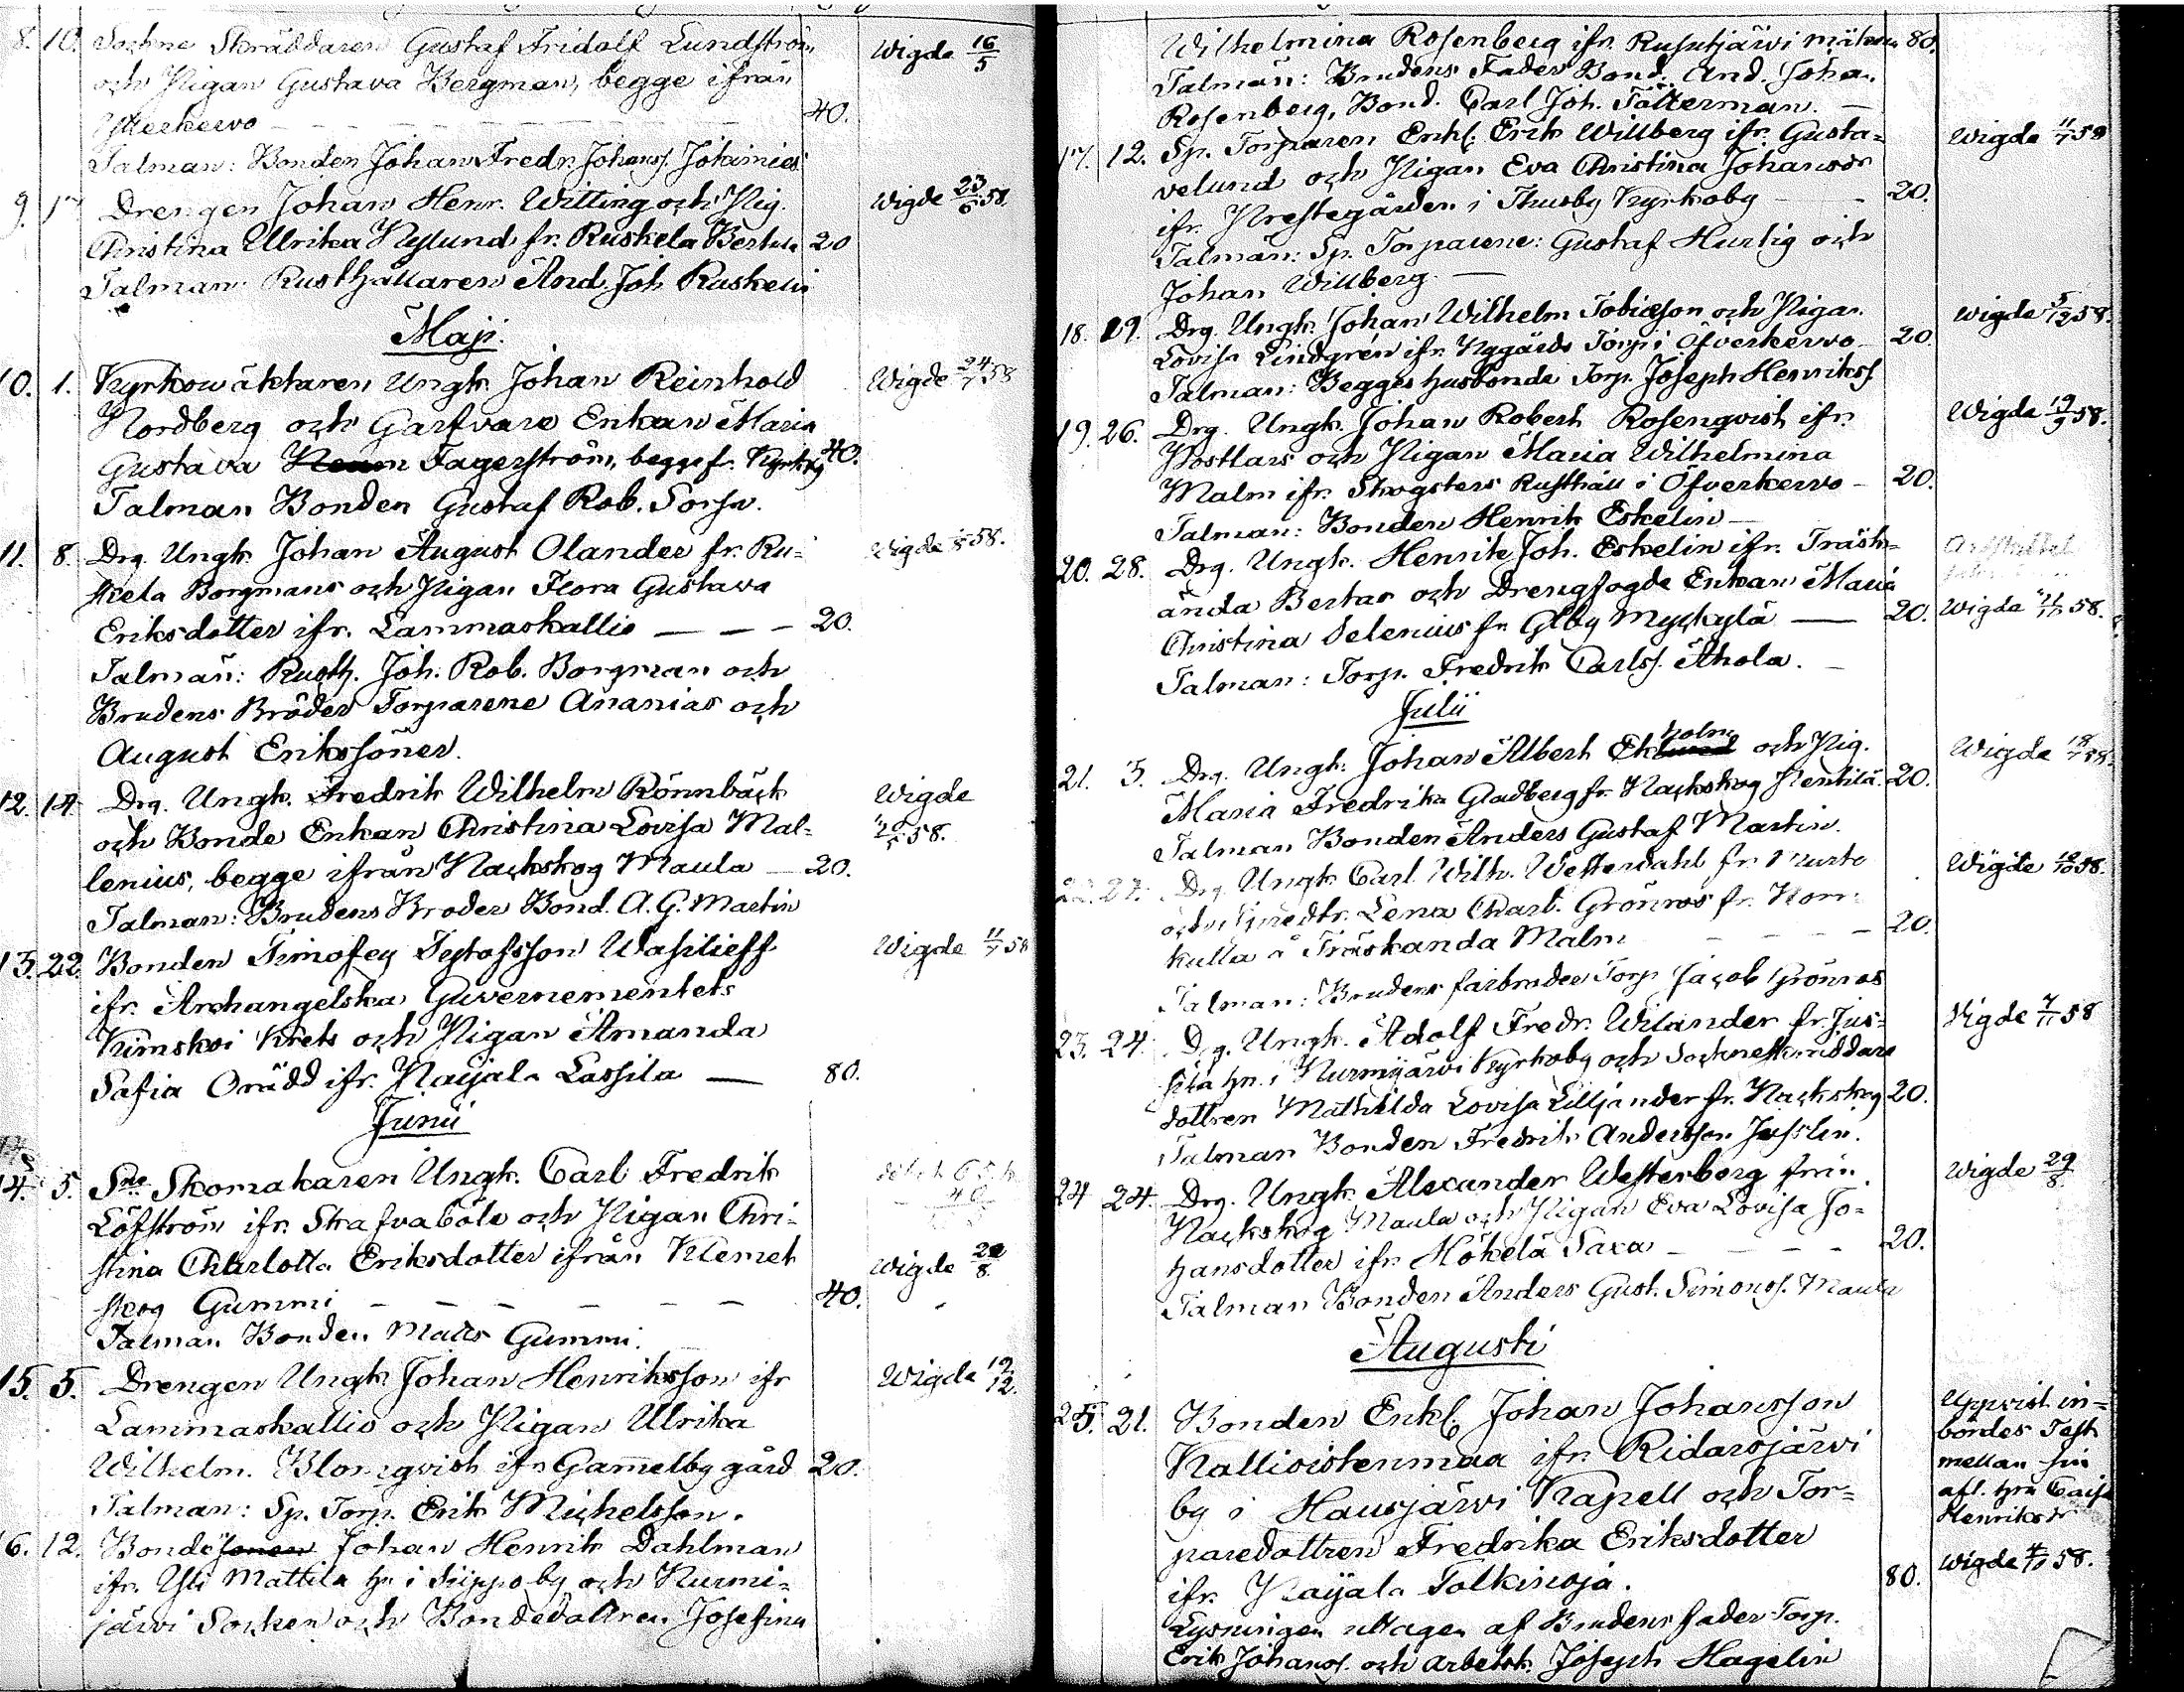 8. 10. Sockne Skräddaren Gustaf Fridolf Lundström Wigde 16/5
och Pigan Gustava Bergman, begge ifrån
Ytterkervo — 40.
Talman: Bonden Johan Fredr. Johanss. Johimies
9. 17 Drengen Johan Henr. Witting och Pig. Wigde 23/6 58.
Christina Ulrika Nylund fr. Ruskela Bertila 20
Talman: Rusthållaren And. Joh. Ruskelin
Maji.
10. 1. Kyrkowäktaren Ungk. Johan Reinhold Wigde 24/7 58
Nordberg och Garfvare Enkan Maria
Gustava Fagerström, begge fr. Kyrkoby 40.
Talman Bonden Gustaf Rob. Sorsa.
11. 8. Drg. Ungk. Johan August Olander fr. Ru- Wigde 58.
skela Borgmans och Pigan Flora Gustava
Eriksdotter ifr. Lammaskallio — — — 20.
Talmän: Rusth. Joh. Rob. Borgman och
Brudens Bröder Torparene Ananias och
August Erikssöner.
12. 14. Drg. Ungk. Fredrik Wilhelm Rönnbäck Wigde
och Bonde Enkan Christina Lovisa Mal- 58.
lenius, begge ifrån Nackskog Maula — 20.
Talman: Brudens Broder Bond. A. G. Martin
13. 22. Bonden Timofey Wasilieff Wigde 11/7 58
ifr. Archangelska Guvernementets
Kimskoi Krets och Pigan Amanda
Safia Orädd ifr. Paijala Lassila — 80.
Junii
14. 5. Sne Skomakaren Ungk. Carl Fredrik
Löfström ifr. Skafvaböle och Pigan Chri-
stina Charlotta Eriksdotter ifrån Klemet Wigde 22/8
skog Gummi — — — — — — 40.
Talman Bonden Matts Gummi.
15. 5. Drengen Ungk. Johan Henriksson ifr Wigde 19/12.
Lammaskallio och Pigan Ulrika
Wilhelm. Blomqvist ifr. Gamelby gård 20.
Talman: Sp. Torp. Erik Michelsson.
16. 12. Bonde sonen Johan Henrik Dahlman
ifr. Yli Mattila hn i Siippo by och Nurmi-
järvi Socken och Bondedottren Josefina
Wilhelmina Rosenberg ifr. Rusutjärvi 80.
Talmän: Brudens Fader Bond. And. Johan
Rosenberg, Bond. Carl Joh. Tallerman. —
17. 12. Sp. Torparen Enkl. Erik Willberg ifr. Gusta- Wigde 11/7 58
velund och Pigan Eva Christina Johansdr
ifr. Prestegården i Thusby Kyrkoby — 20.
Talmän: Sp. Torparene: Gustaf Hurtig och
Johan Willberg —
18. 19. Drg. Ungk. Johan Wilhelm Tobiesson och Pigan Wigde 5/12 58.
Lovisa Lindgrén ifr. Nygårds Torp i Öfverkervo — 20.
Talman: Begges husbonde Torp. Joseph Henrikss.
19. 26. Drg. Ungk. Johan Robert Rosenqvist ifr. Wigde 19/9 58.
Postlars och Pigan Maria Wilhelmina
Malm ifr. Skogsters Rusthåll i Öfverkervo — 20.
Talman: Bonden Henrik Eskelin —
20. 28. Drg. Ungk. Henrik Joh. Eskelin ifr. Träsk-
ända Bertas och Drengfogde Enkan Maria
Christina Selenius fr. Glby Myckylä — 20. Wigde 58.
Talman: Torp. Fredrik Carlss. Ahola. —
Julii
21. 3. Drg. Ungk. Johan Albert Ekholm och Pig. Wigde 18/7 58.
Maria Fredrika Gladberg fr. Nackskog Pentilä. 20.
Talman Bonden Anders Gustaf Martin.
22. 27. Drg. Ungk. Carl Wilh. Westerdahl fr. Wigde 58.
Lena Charl. Grönros fr. Horn-
kulla å Träskanda Malm — — — 20.
Talman: Brudens farbroder Torp. Jacob Grönros
23. 24. Drg. Ungk. Adolf Fredr. Wilander fr. Jus- Vigde 7/11 58
sila hn. i Nurmijärvi Kyrkoby och Sockneskräddare
dottren Mathilda Lovisa Lilljander fr. Nackskog 20.
Talman Bonden Fredrik Andersson Jusslin.
24 24. Drg. Ungk. Alexander Westerberg från Wigde 29/8
Nackskog Maula och Pigan Eva Lovisa Jo-
hansdotter ifr. Hökelä Saxa — — — — 20.
Talman Bonden Anders Gust. Simonss. Maula
Augusti
25. 21. Bonden Enkl. Johan Johansson Uppvist in-
Kallioistenmaa ifr. Ridarsjärvi bördes Test
by i Hausjärvi Kapell och Tor- mellan sin
paredottren Fredrika Eriksdotter afl. hru Caisa Henriksdr
ifr. Paijala Tolkinoja. 80. Wigde 58.
Lysningen uttagen af Brudens fader Torp.
Erik Johanss. och Arbetsk. Joseph Hagelin